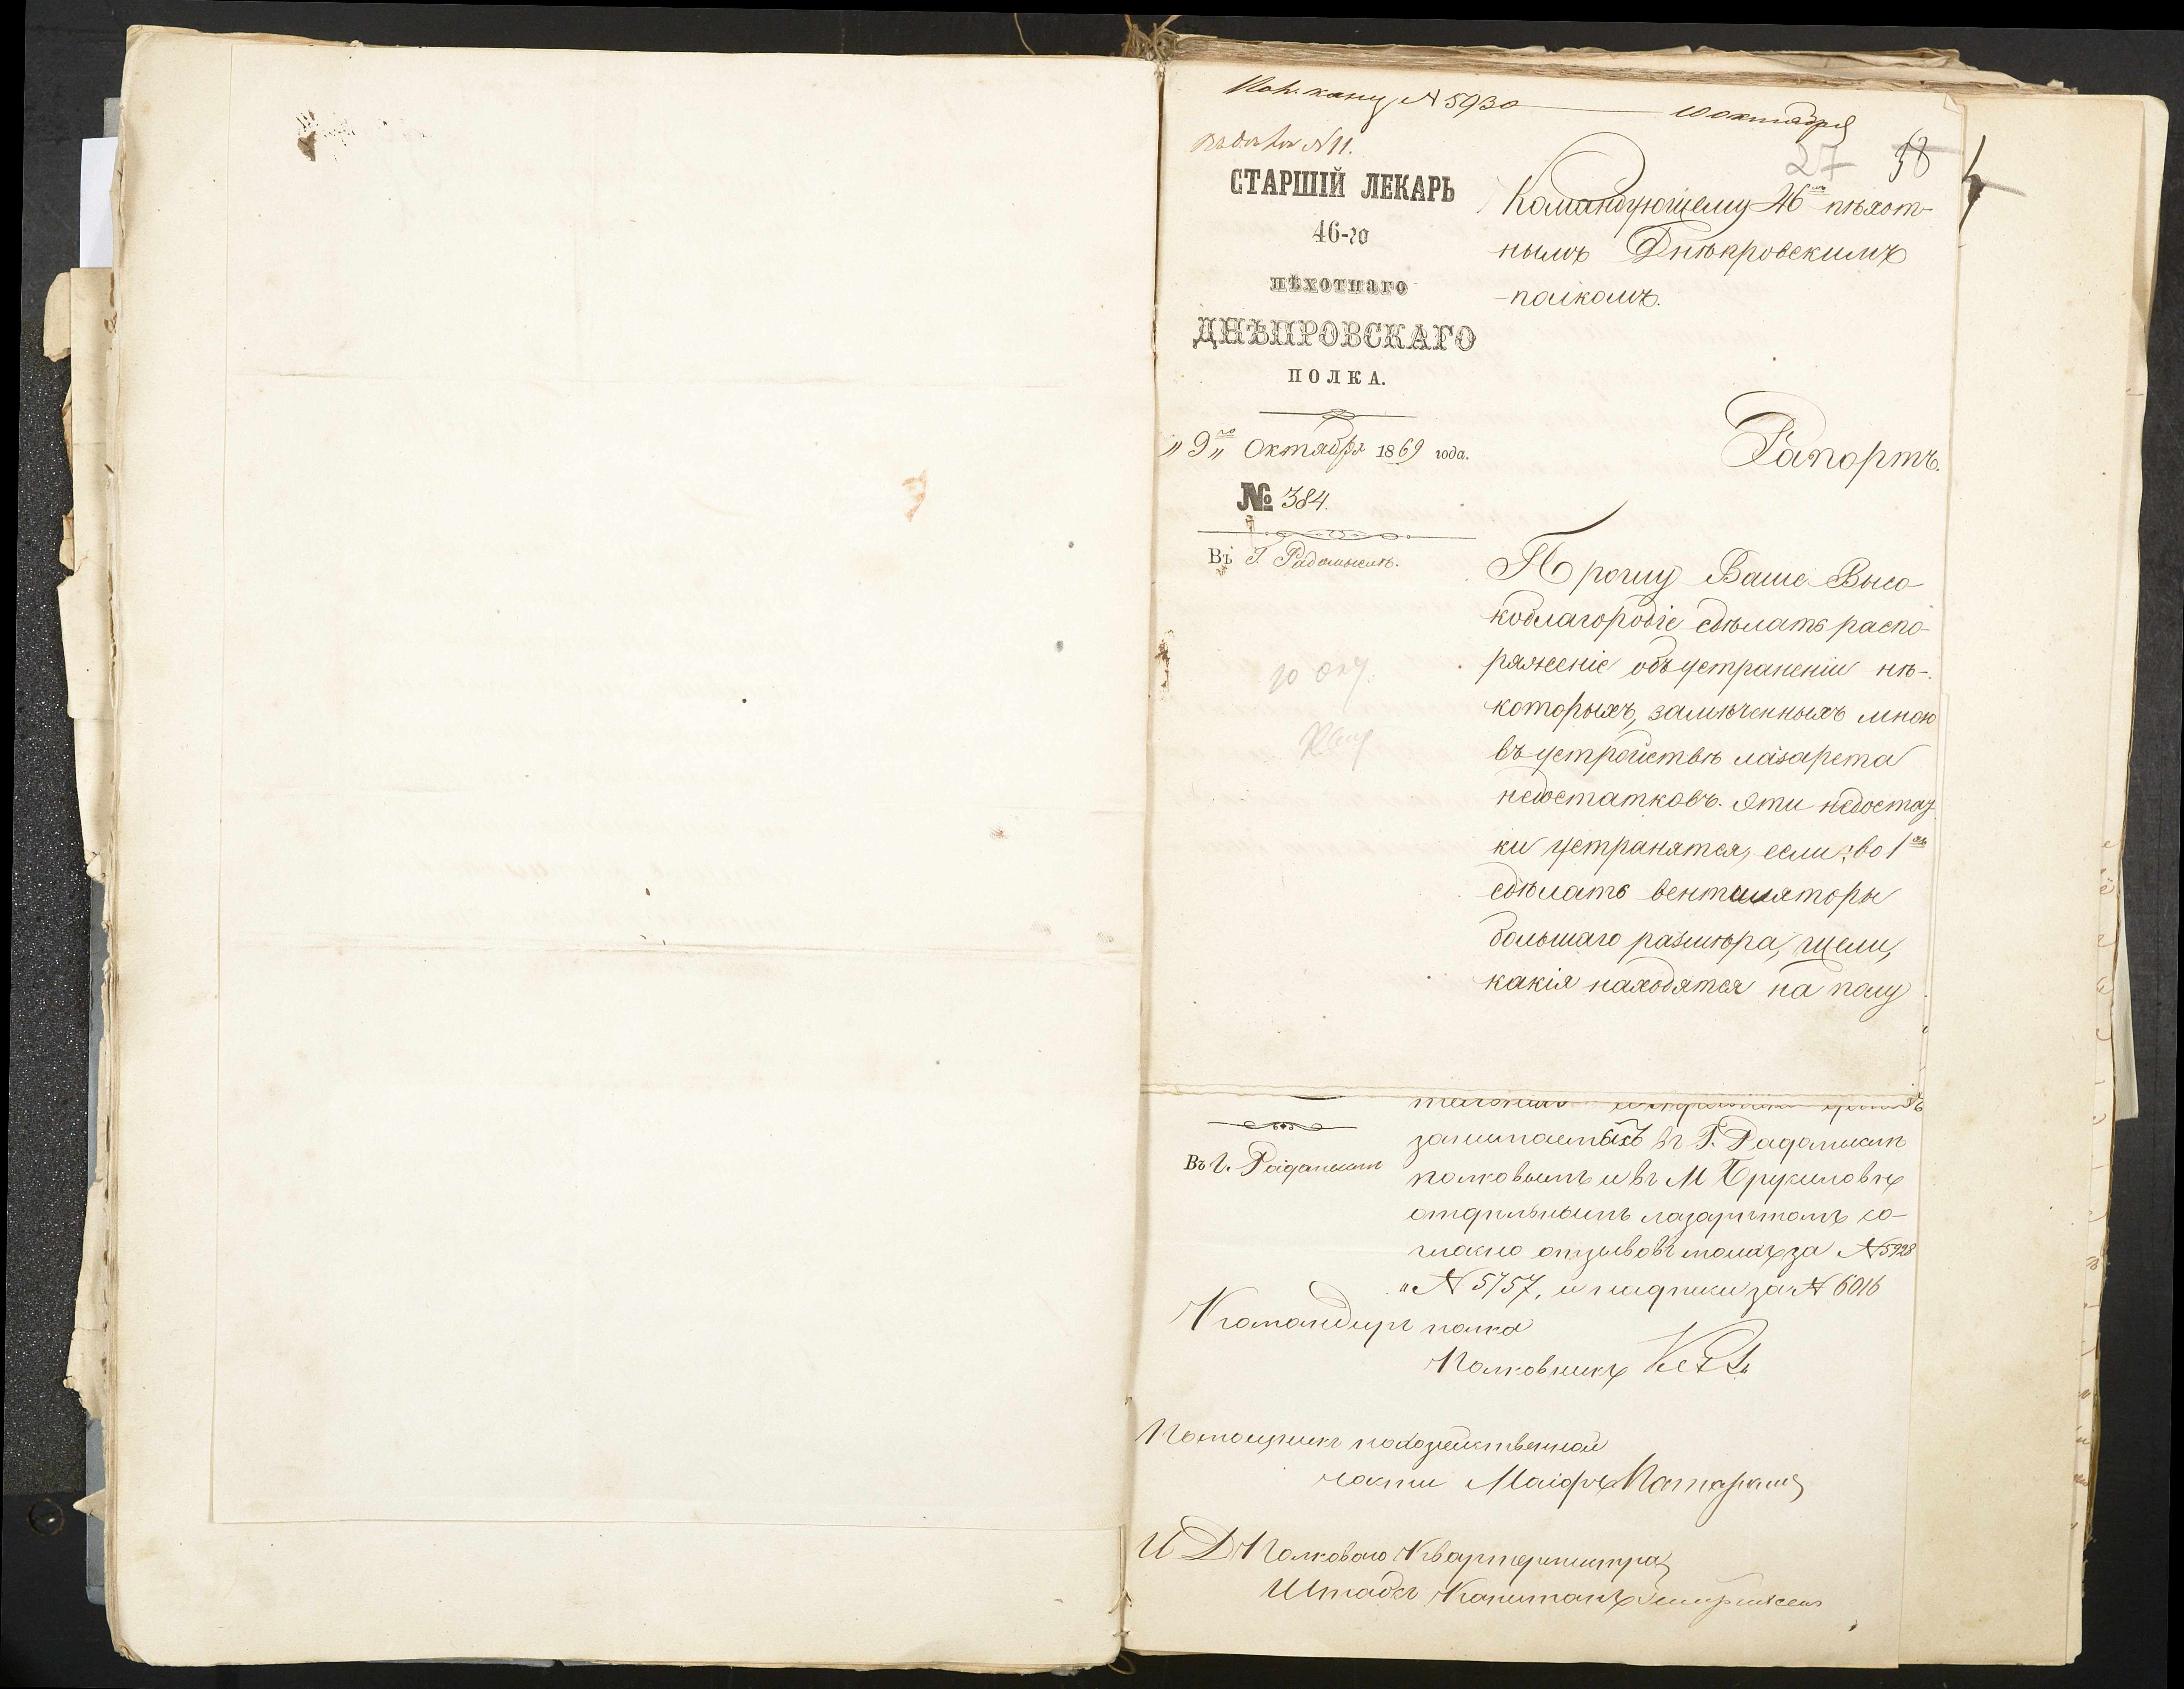 № 5930 10 октября
№ 11.
27 58
СТАРШІЙ ЛЕКАРЬ
46-го
пѣхотнаго
ДНѢПРОВСКАГО
ПОЛКА.
„9го„ Октября 1869 года.
№ 384.
Въ Г. Радомыслѣ.
10 Окт.
Командующему 46мъ пѣхот-
нымъ Днѣпровскимъ
полкомъ.
Рапортъ.
Прошу Ваше Высо-
коблагородіе сдѣлать распо-
ряженіе объ устраненіи нѣ-
которыхъ, замѣченныхъ мною
въ устройствѣ лазарета
недостатковъ. Эти недостат-
ки устранятся, если: во 1хъ
сдѣлать вентиляторы
большаго размѣра, щели,
какія находятся на полу
Въ Г. Радомыслѣ
занимаемыхъ въ Г. Радомыслѣ
полковымъ и въ М Брусиловѣ
отдѣльнымъ лазаретомъ со-
гласно отзывовъ моихъ за № 5928
и № 5757, и надписи за № 6016
Командиръ полка
Полковникъ
Помощникъ по хозяйственной
части Маіоръ
И Д Полковаго Квартермистра
Штабсъ Капитанъ